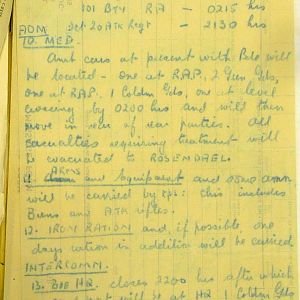 101 BTY RA - 0215 hrs
ADM Det 20 ATK Regt - 2130 hrs
10. MED.
Amb cars at present with Bde will
be located - one at R.A.P. 2 Gren Gds,
one at R.A.P. 1 Coldm Gds, one at level
crossing by 0200 hrs and will then
move in rear of rear parties. All
casualties requiring treatment will
be evacuated to ROSENDAEL.
ARMS and Equipment and amn
will be carried by tps: this includes
Brens and ATK rifles.
12. IRON RATION and, if possible, one
days ration in addition will be carried
INTERCOMM.
13. BDE HQ. closes 2200 hrs after which
will be at HQ 1 Coldm Gds